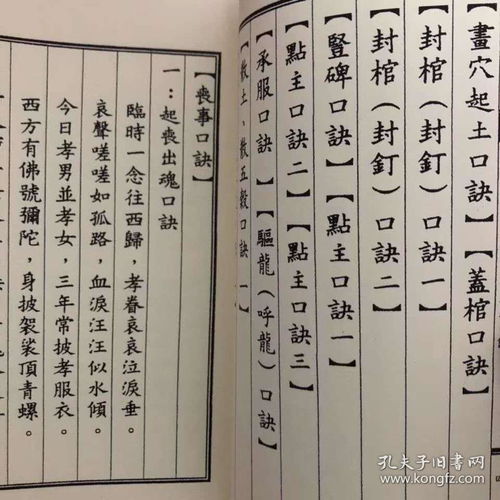 畫穴起土口訣】【蓋棺口訣】
封棺（封釘）口訣一】
封棺（封釘）口訣二】
豎碑口訣】【點主口訣一】
點主口訣二】【點主口訣三】
承服口訣】【驅龍（呼龍）口訣】
散土、散五穀口訣一】
【喪事口訣】
一：起喪出魂口訣
臨時一念往西歸，孝眷哀哀泣淚垂。
哀聲嗟嗟如孤路，血淚汪汪似水傾。
今日孝男並孝女，三年常披孝服衣。
西方有佛號彌陀，身披袈裟頂青螺。
孔夫子旧书网
www.kongfz.com